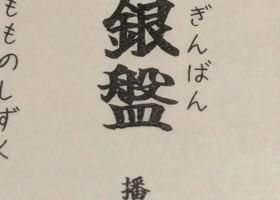 ぎんばん
銀盤
播
もものしずく